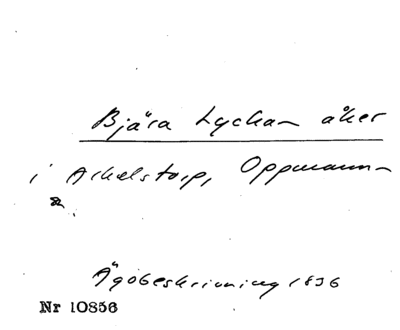 Bjära Lyckan åker
i Arkelstorp, Oppmann-
a.
Ägobeskrivning 1836
Nr 10856